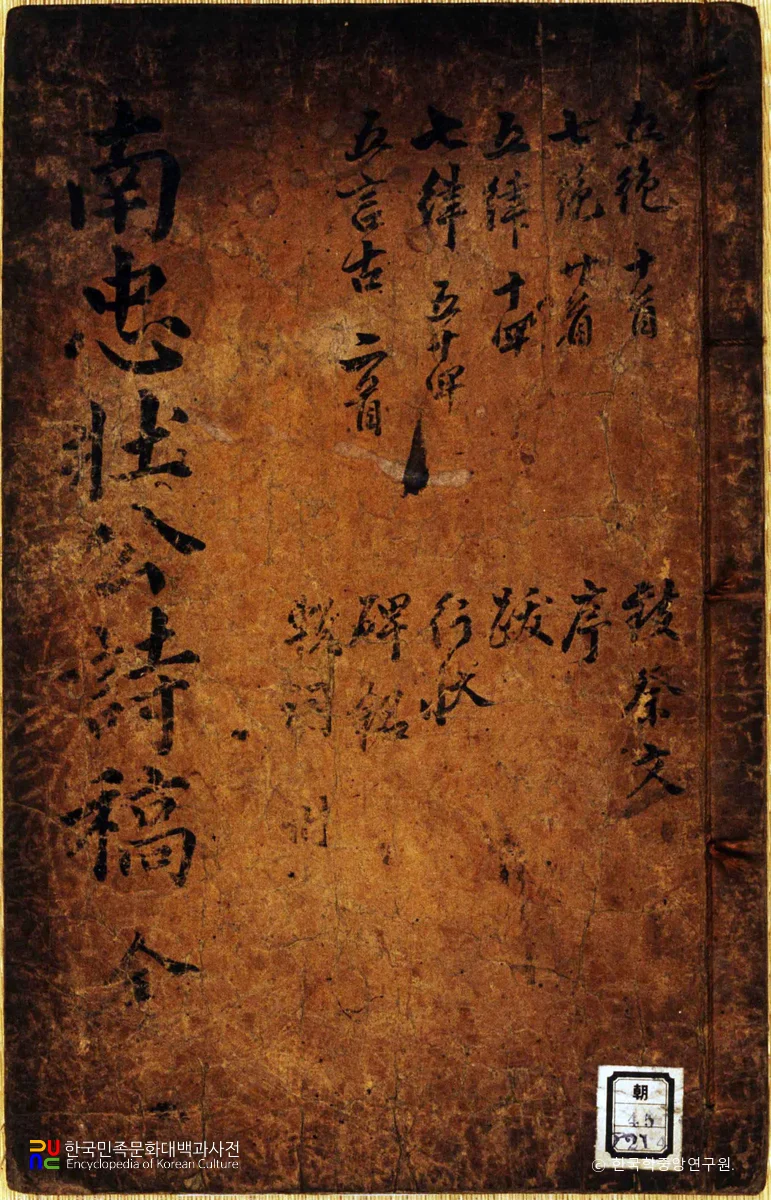 五絶 十首
七絶 廿首
五律 十四
七律
五言古 二首
致祭文
序
跋
行狀
碑銘
輓詞 附
南忠壯公詩稿 全
朝
45
한국민족문화대백과사전
Encyclopedia of Korean Culture
© 한국학중앙연구원.